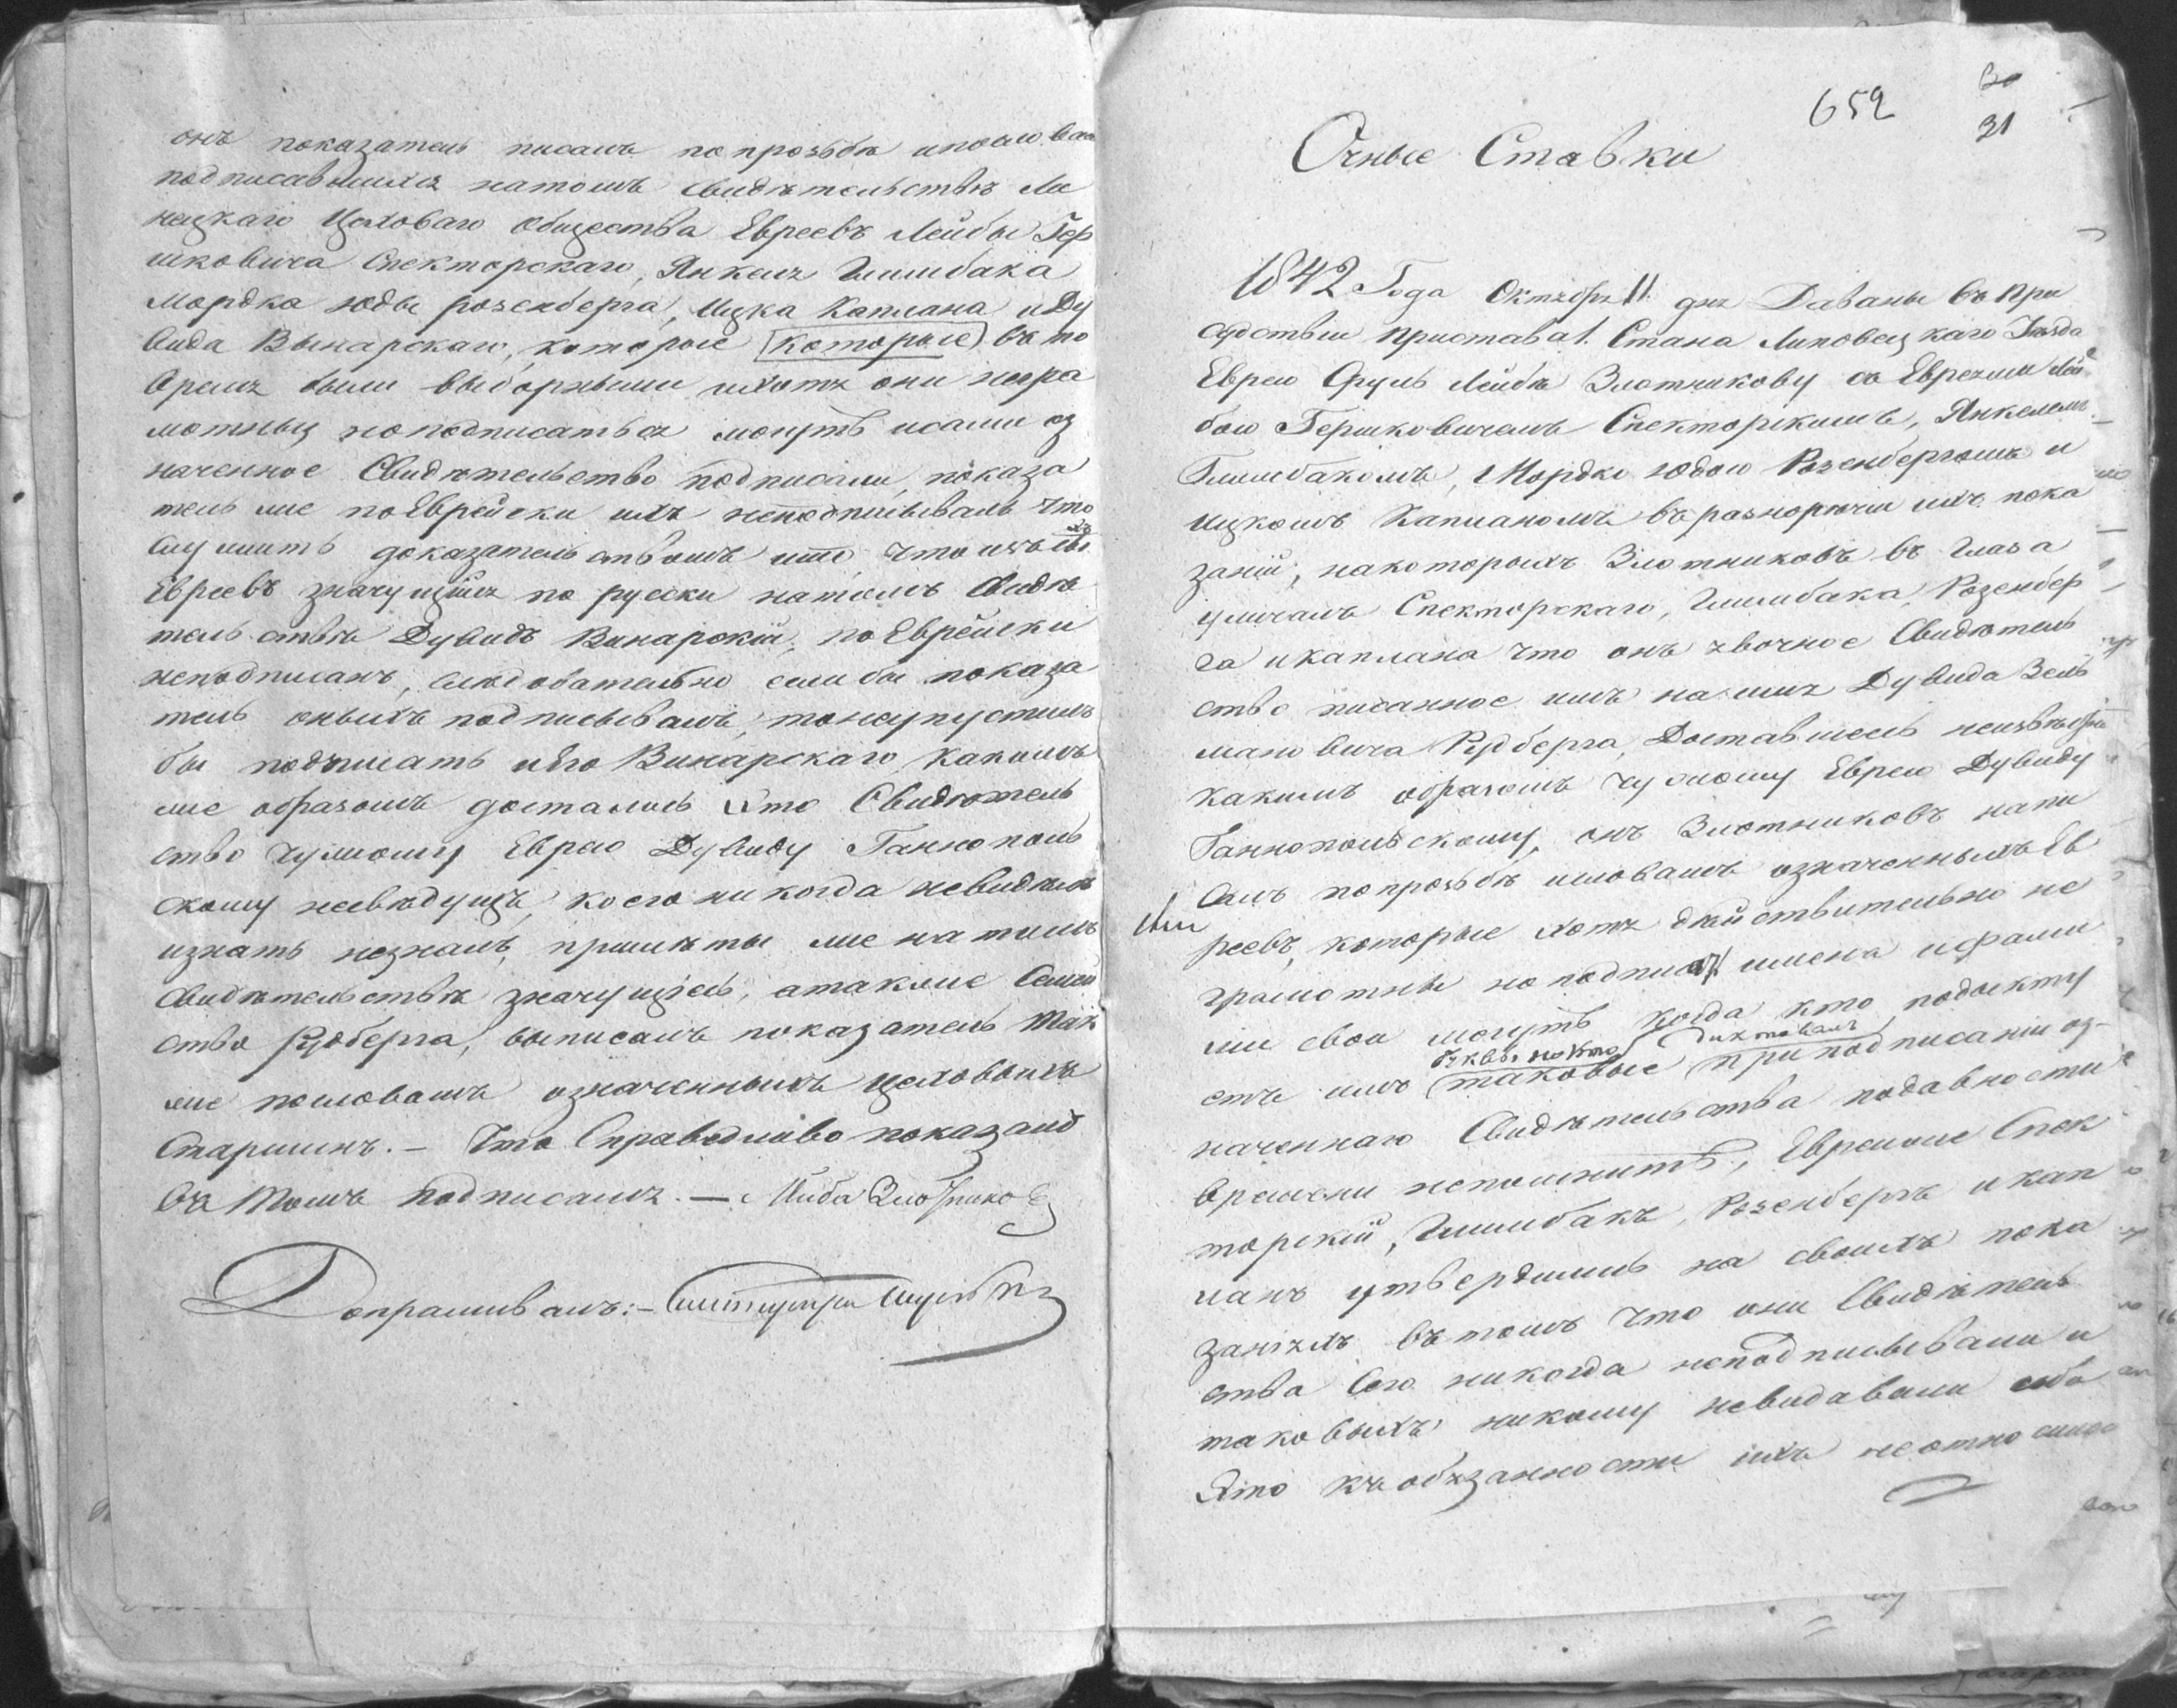 онъ показатель писалъ по прозьбѣ
подписавшихся натомъ свидѣтельствѣ Ли
нецкаго Цеховаго общества Евреевъ Лейбы Гер
шковича Спекторскаго, Янкеля Гишбака
Мордка Юды розенберга, Ицка Каплана и Ду
вида Винарскаго, которые (которые) въ то
время были выборными и хотя они негра
мотны но подписаться могутъ и сами оз
наченное Свидѣтельство подписали, показа
тель же по Еврейски ихъ неподписывалъ что
служитъ доказательствомъ и то, что изъ
Евреевъ значущійся по русски на томъ Свидѣ
тельствѣ Дувидъ Винарскій, по Еврейски
неподписанъ, слѣдовательно если бы показа
тель оныхъ подписывалъ, то неупустилъ
бы подписать и его Винарскаго, какимъ
же образомъ досталось Это Свидѣтель
ство чужому Еврею Дувиду Ганнополь
скому невѣдущъ, коего никогда невидѣлъ
и знать незналъ, примѣты же на томъ
Свидѣтельствѣ значущіесь, а также Семей
ство Рудберга, выписалъ показатель так
же по словамъ означенныхъ цеховыхъ
Старшинъ. – Что Справедливо показалъ
въ томъ подписался. — Лейба Злотников
Допрашивалъ: –
652
30
31
Очные Ставки
1842 Года Октября 11 дня Даваны въ При
судствіи Пристава 1. Стана Липовецкаго Уѣзда
Еврею Сруль Лейбѣ Злотникову съ Евреями Лей
бою Гершковичемъ Спекторскимъ, Янкелемъ
Гишбакомъ, Мордко Юдою Розенбергомъ и
Ицкомъ Капланомъ въ разноречіи ихъ пока
заній, на которыхъ Злотниковъ въ глаза
уличалъ Спекторскаго, Гишбака, Розенбер
га и каплана что онъ явочное Свидѣтель
ство писанное имъ на имя Дувида Зель
мановича Рудберга, Доставшесь неизвѣстно
какимъ образомъ чужому Еврею Дувиду
Ганнопольскому, онъ Злотниковъ напи
салъ по прозьбѣ и словамъ означенныхъ Ев
реевъ, которые хотя дѣйствительно не
грамотны но подписать имена и фами
ліи свои могутъ когда кто подыкту
етъ имъ буквы, но кто диктовалъ
таковые при подписаніи оз-
наченнаго Свидѣтельства подавности
времени непомнитъ, Евреи же Спек
торскій, Гишбакъ, Розенбергъ и кап
ланъ утвердились на своихъ пока
заніяхъ въ томъ что они Свидѣтель
ства Сего никогда неподписывали и
таковыхъ никому невидавали ибо
Это къ обязанности ихъ неотносилось